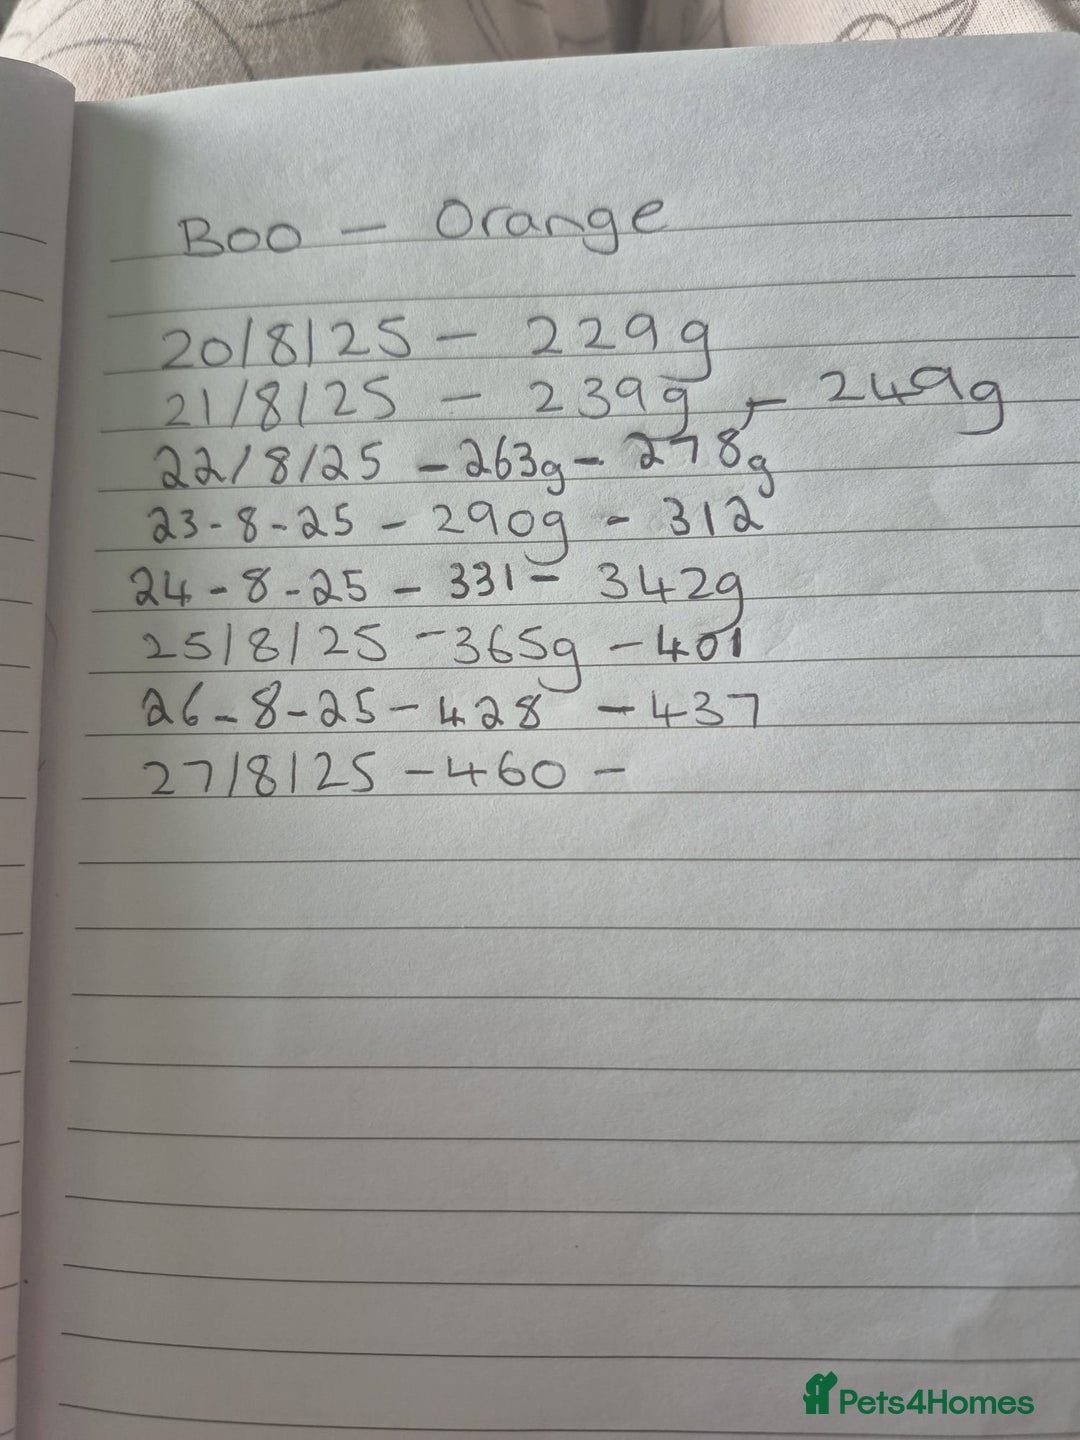 Boo - Orange
20/8/25 - 229g
21/8/25 - 239g - 249g
22/8/25 - 263g - 278g
23-8-25 - 290g - 312
24-8-25 - 331 - 342g
25/8/25 - 365g - 401
26-8-25 - 428 - 437
27/8/25 - 460 -
Pets4Homes